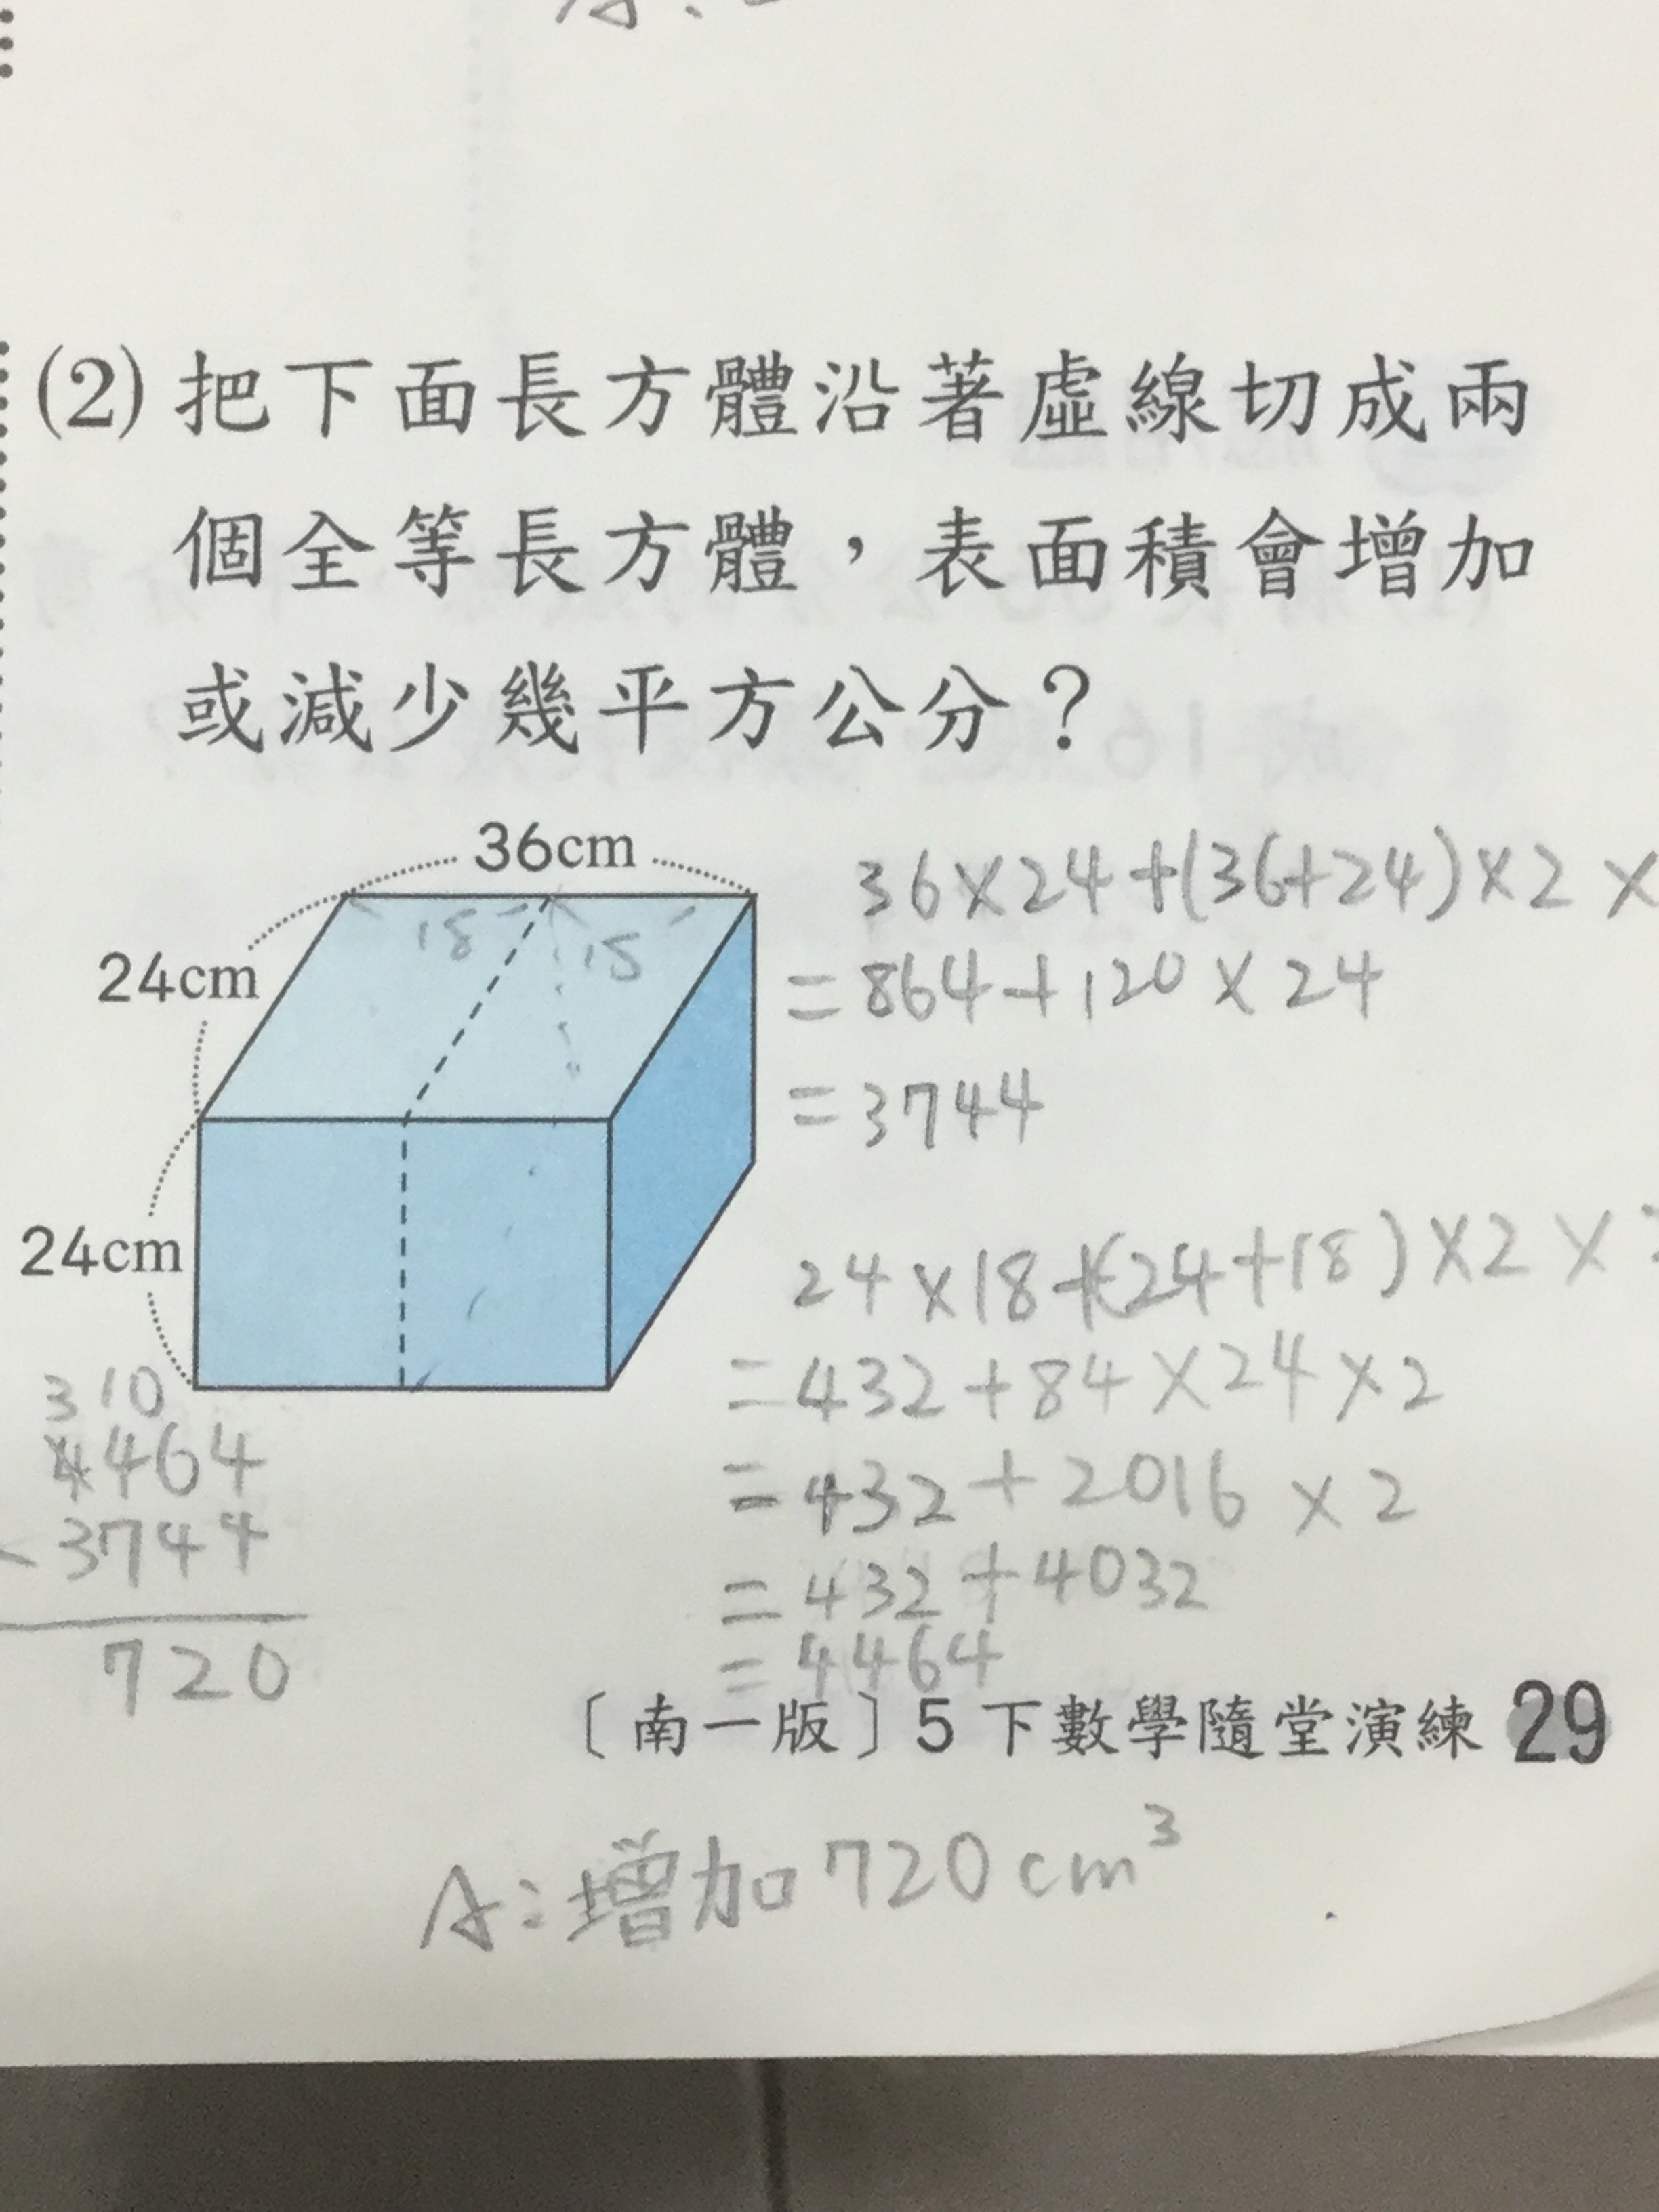 (2)把下面長方體沿著虛線切成兩
個全等長方體，表面積會增加
或減少幾平方公分？
36cm
24cm
24cm
18
18
36×24+(36+24)×2×
=864+120×24
=3744
24×18+(24+18)×2×
=432+84×24×2
=432+2016×2
=432+4032
=4464
3 10
4464
-3744
720
〔南一版〕5下數學隨堂演練 29
A:增加720cm³